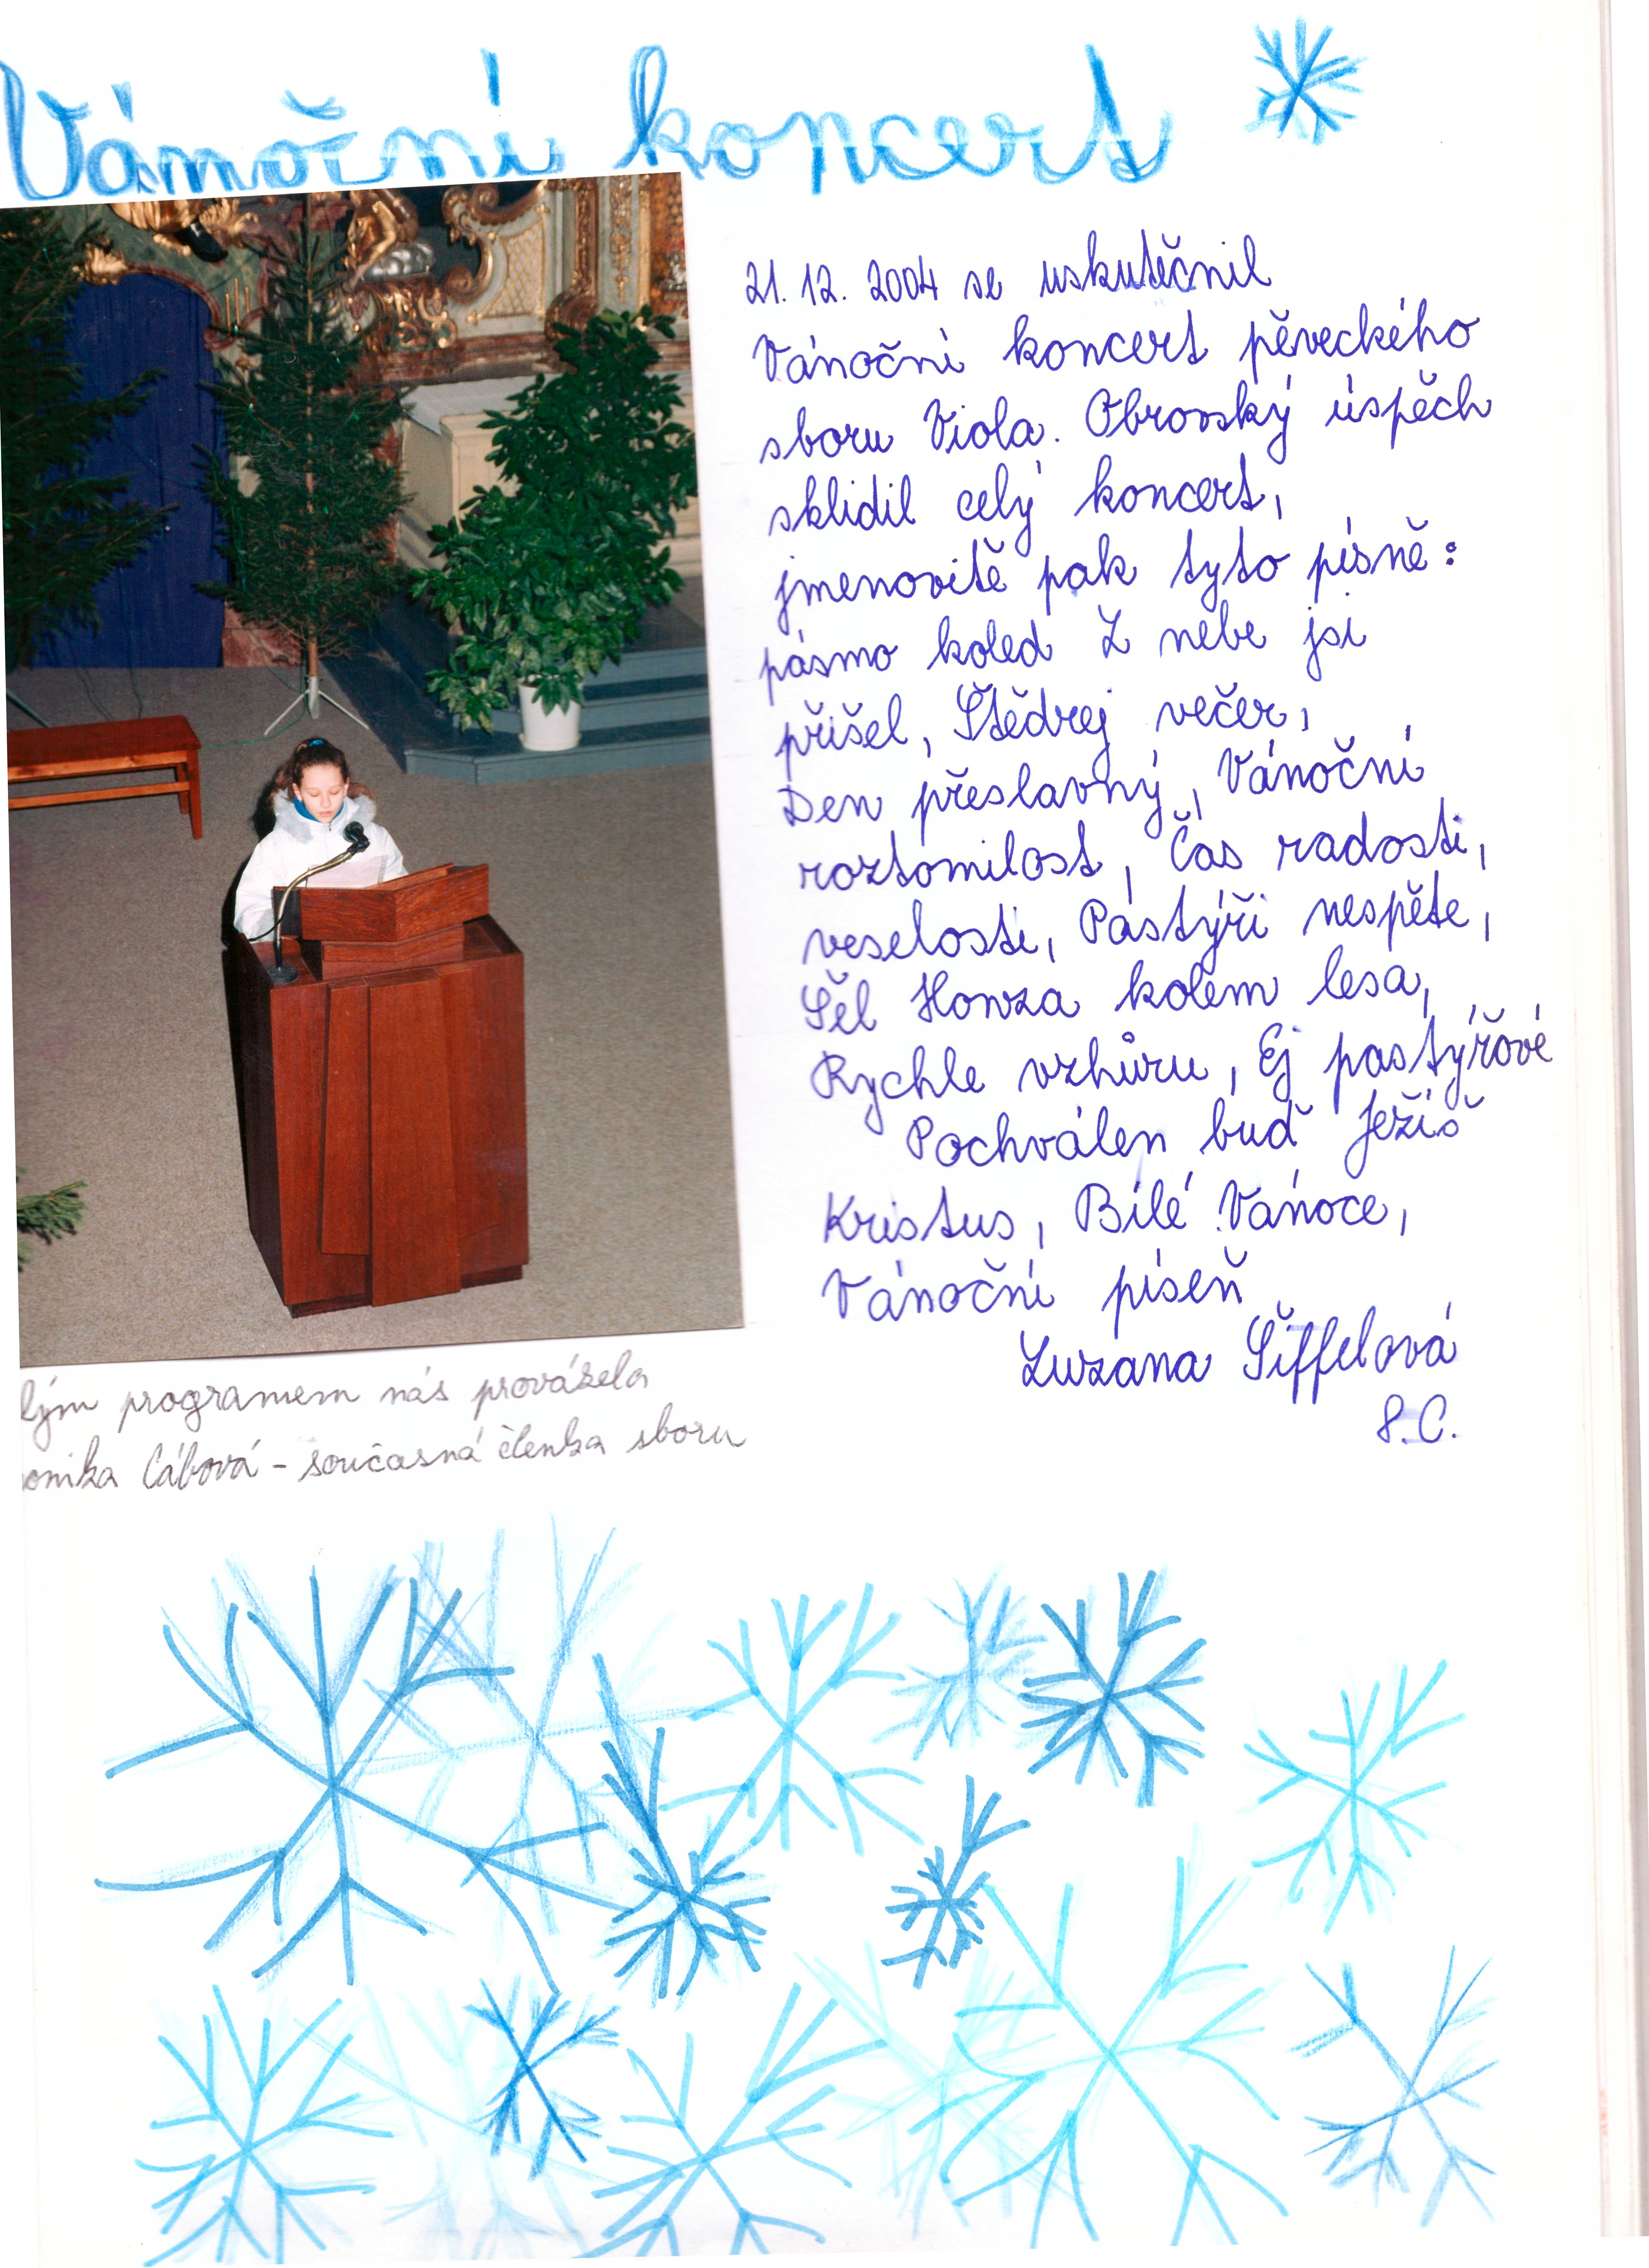 Vánoční koncert
21. 12. 2004 se uskutečnil
Vánoční koncert pěveckého
sboru Viola. Obrovský úspěch
sklidil celý koncert,
jmenovitě pak tyto písně:
pásmo koled Z nebe jsi
přišel, Štědrej večer,
Den přeslavný, Vánoční
roztomilost, Čas radosti,
veselosti, Pastýři nespěte,
Šel Honza kolem lesa,
Rychle vzhůru, Ej pastýřové
Pochválen buď Ježíš
Kristus, Bílé Vánoce,
Vánoční píseň
Zuzana Šiffelová
8.C.
lým programem nás provázela
onika Cábová - současná členka sboru